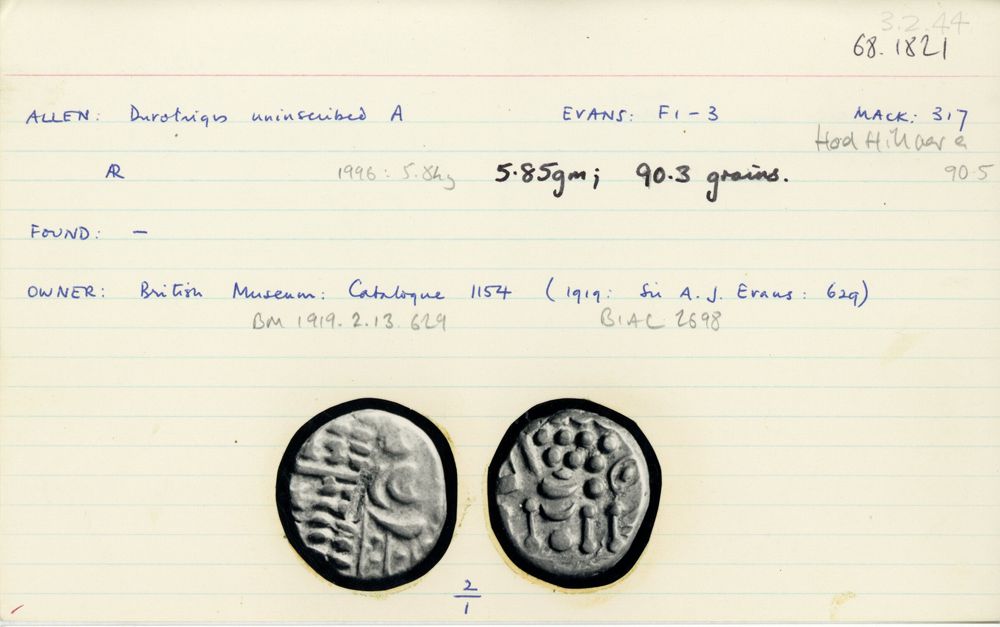 3.2.44
68.1821
ALLEN: Durotriges uninscribed A EVANS: F1-3 MACK: 317
Hod Hill
AR 1996: 5.84g 5.85gm; 90.3 grains. 90.5
FOUND: –
OWNER: British Museum: Catalogue 1154 (1919: Sir A.J. Evans: 629)
BM 1919.2.13.629 BIAC 2698
2
1